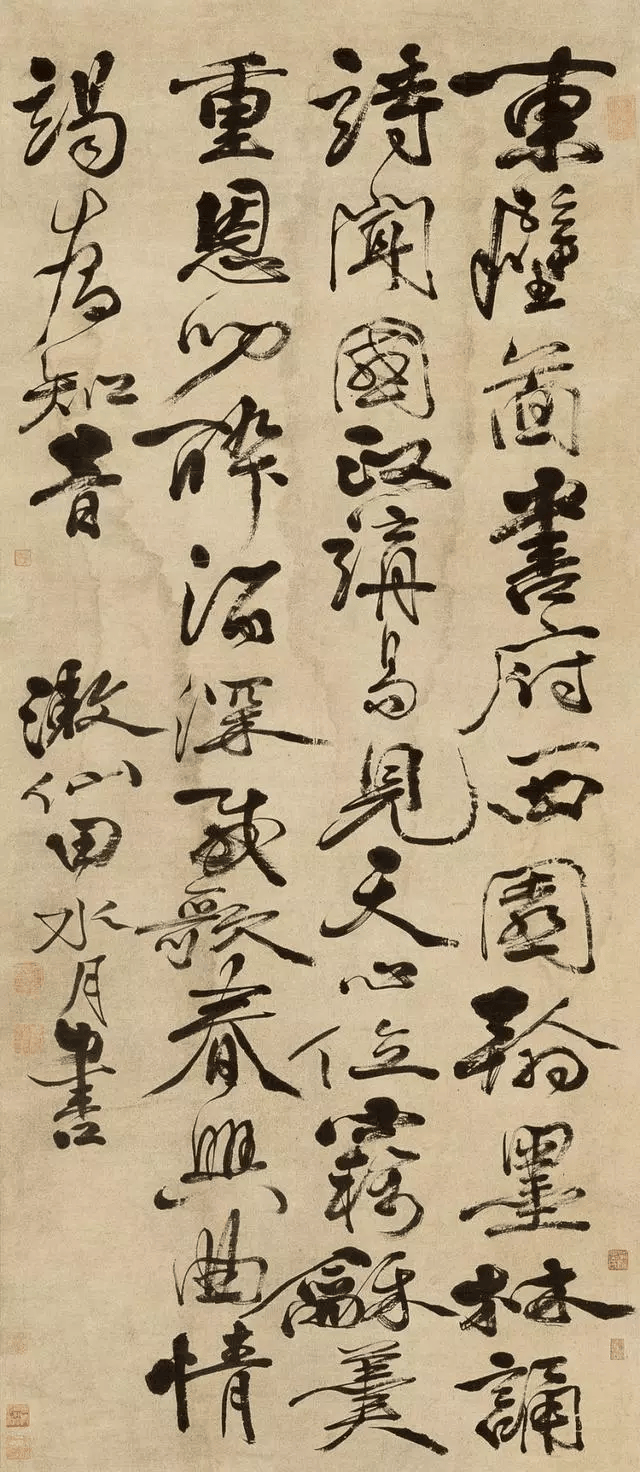 東壁圖書府西園翰墨林誦
詩聞國政講易見天心位竊龢羹
重恩叨醉酒深載歌春興曲情
竭為知音 漱仙田水月書